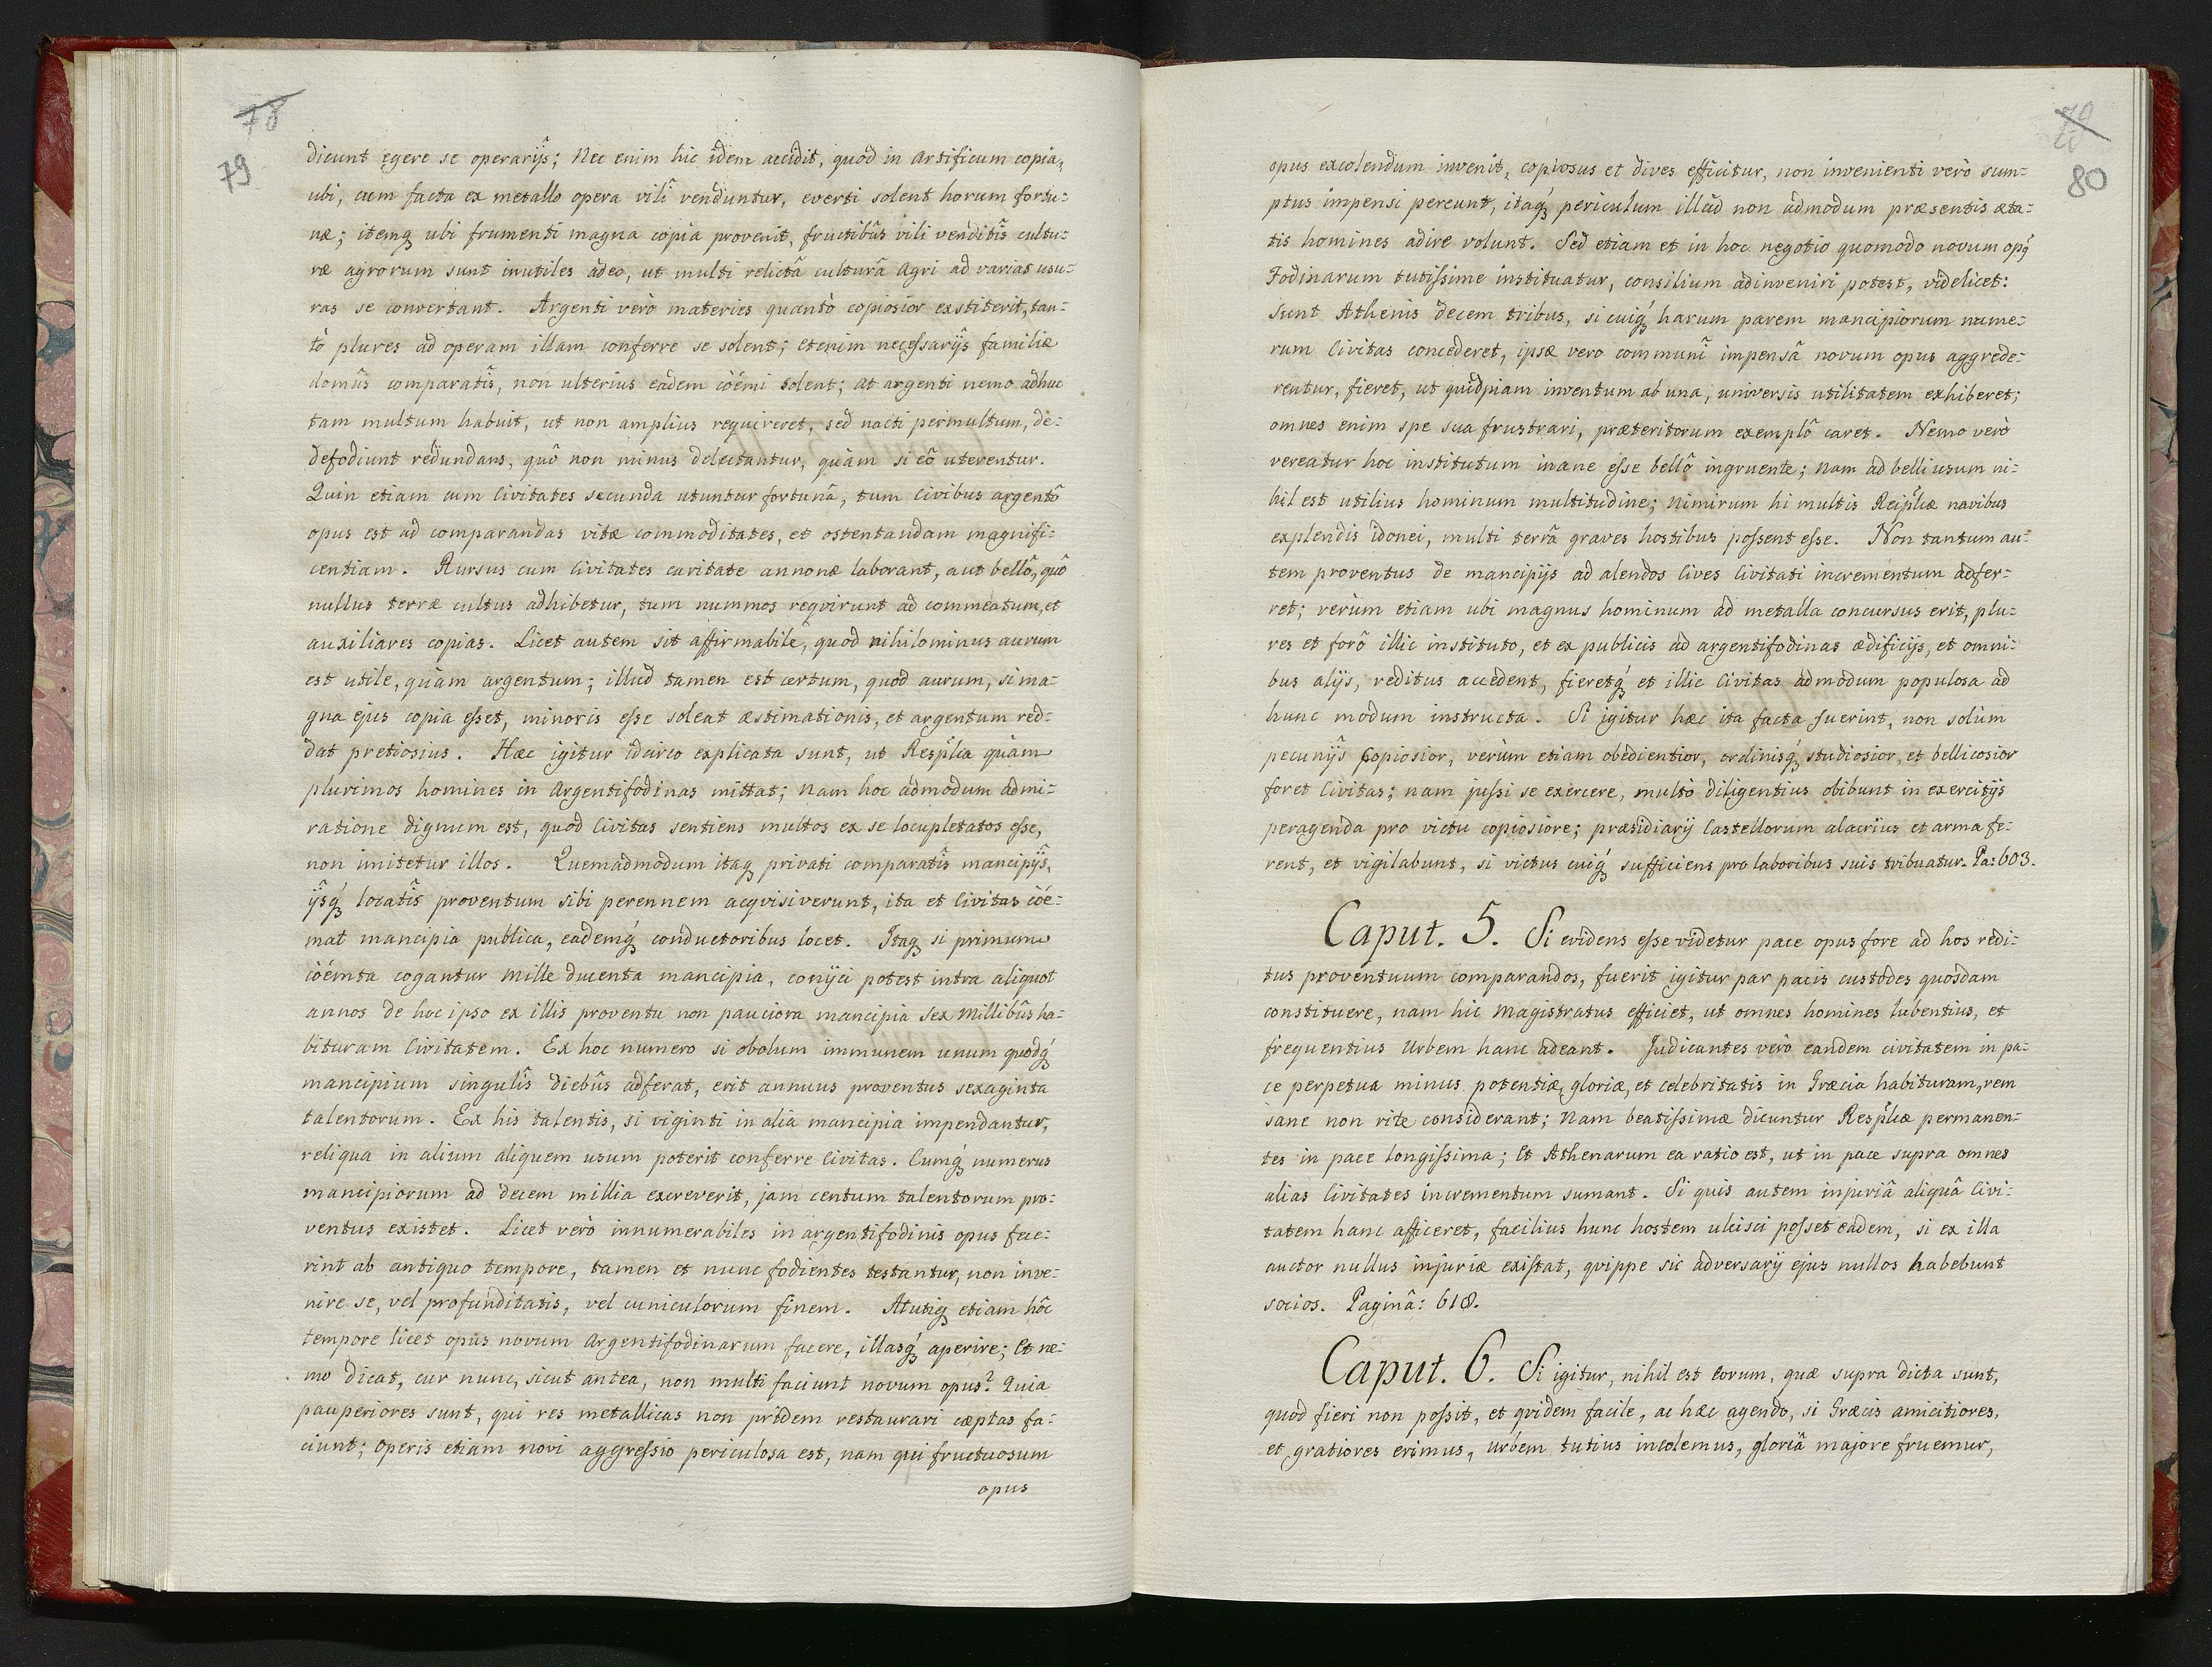 78
79
dicunt egere se operarijs; Nec enim hic idem accidit, quod in artificum copia,
ubi, cum facta ex metallo opera vilî venduntur, everti solent horum fortu:
næ; itemq ubi frumenti magna copia provenit, fructibûs vili venditîs cultu:
ræ agrorum sunt inutiles adeo, ut multi relictâ culturâ Agri ad varias usu:
ras se convertant. Argenti verò materies quantò copiosior exstiterit, tan:
tò plures ad operam illam conferre se solent; etenim necessarijs familiæ
domûs comparatîs, non ulterius eadem cöémi solent; at argenti nemo adhuc
tam multum habuit, ut non amplius requireret, sed nacti permultum, de:
defodiunt redundans, quô non minus delectantur, quàm si eô uterentur.
Quin etiam cum Civitates secunda utuntur fortunâ, tum Civibus argentô
opus est ad comparandas vitæ commoditates, et ostentandam magnifi:
centiam. Rursus cum Civitates caritate annonæ laborant, aut bellô, quô
nullus terræ cultus adhibetur, tum nummos reqvirunt ad commeatum, et
auxiliares copias. Licet autem sit affirmabile, quod nihilominus aurum
est utile, quàm argentum; illud tamen est certum, quod aurum, si ma:
gna ejus copia esset, minoris esse soleat æstimationis, et argentum red:
dat pretiosius. Hæc igitur idcirco explicata sunt, ut Resplîca quàm
plurimos homines in Argentifodinas mittat; nam hoc admodum admi:
ratione dignum est, quod Civitas sentiens multos ex se locupletatos esse,
non imitetur illos. Quemadmodum itaq privati comparatîs mancipijs,
ijsq́ locatîs proventum sibi perennem acqvisiverunt, ita et Civitas cöé:
mat mancipia publica, eademq́ conductoribus locet. Itaq si primum
cöémta cogantur Mille ducenta mancipia, conijci potest intra aliquot
annos de hoc ipso ex illis proventu non pauciora mancipia sex Millibûs ha:
bituram Civitatem. Ex hoc numero si obolum immunem unum quodq́
mancipium singulîs diebûs adferat, erit annuus proventus sexaginta
talentorum. Ex his talentis, si viginti in alia mancipia impendantur,
reliqua in alium aliquem usum poterit conferre Civitas. Cumq́ numerus
mancipiorum ad decem millia excreverit, jam centum talentorum pro:
ventus existet. Licet verò innumerabiles in argentifodinis opus fece:
rint ab antiquo tempore, tamen et nunc fodientes testantur, non inve:
nire se, vel profunditatis, vel cuniculorum finem. Atutiq etiam hôc
tempore licet opus novum Argentifodinarum facere, illasq́ aperire; Et ne:
mo dicat, cur nunc, sicut antea, non multi faciunt novum opus? Quia
pauperiores sunt, qui res metallicas non pridem restaurari cæptas fa:
ciunt; Operis etiam novi aggressio periculosa est, nam qui fructuosum
opus
79
80
opus excolendum invenit, copiosus et dives efficitur, non invenienti verò sum:
ptus impensi pereunt, itaq́ periculum illud non admodum præsentis æta:
tis homines adire volunt. Sed etiam et in hoc negotio quomodo novum opq́
Fodinarum tutissime instituatur, consilium adinveniri potest, videlicet:
Sunt Athenis decem tribus, si cuiq́ harum parem mancipiorum nume:
rum Civitas concederet, ipsæ vero communî impensâ novum opus aggrede:
rentur, fieret, ut quidpiam inventum ab una, universis utilitatem exhiberet;
omnes enim spe sua frustrari, præteritorum exemplô caret. Nemo verò
vereatur hoc institutum inane esse bellô ingruente; nam ad belli usum ni:
hil est utilius hominum multitudine; nimirum hi multis Reiplîcæ navibus
explendis idonei, multi terrâ graves hostibus possent esse. Non tantum au:
tem proventus de mancipijs ad alendos Cives Civitati incrementum adfer:
ret; verùm etiam ubi magnus hominum ad metalla concursus erit, plu:
res et forô illic instituto, et ex publicis ad argentifodinas ædificijs, et omni:
bus alijs, reditus accedent, fieretq́ et illic Civitas admodum populosa ad
hunc modum instructa. Si igitur hæc ita facta fuerint, non solùm
pecunijs copiosior, verùm etiam obedientior, ordinisq́ studiosior, et bellicosior
foret Civitas; nam jussi se exercere, multò diligentius obibunt in exercitijs
peragenda pro victu copiosiore; præsidiarij Castellorum alacrius et arma fe:
rent, et vigilabunt, si victus cuiq́ sufficiens pro laboribus suis tribuatur. Pa: 603.
Caput. 5. Si evidens esse videtur pace opus fore ad hos redi:
tus proventuum comparandos, fuerit igitur par pacis custodes quosdam
constituere, nam hic Magistratus efficiet, ut omnes homines lubentius, et
frequentius Urbem hanc adeant. Judicantes verò eandem civitatem in pa:
ce perpetua minus potentiæ, gloriæ, et celebritatis in Græcia habituram, rem
sane non rite considerant; Nam beatissimæ dicuntur Resplîcæ permanen:
tes in pace longissima; Et Athenarum ea ratio est, ut in pace supra omnes
alias Civitates incrementum sumant. Si quis autem injuriâ aliquâ Civi:
tatem hanc afficeret, facilius hunc hostem ulcisci posset eadem, si ex illa
auctor nullus injuriæ existat, qvippe sic adversarij ejus nullos habebunt
socios. Paginâ: 618.
Caput. 6. Si igitur, nihil est eorum, quæ supra dicta sunt,
quod fieri non possit, et qvidem facile, ac hæc agendo, si Græcis amicitiores,
et gratiores erimus, Urbem tutius incolemus, gloriâ majore fruemur,